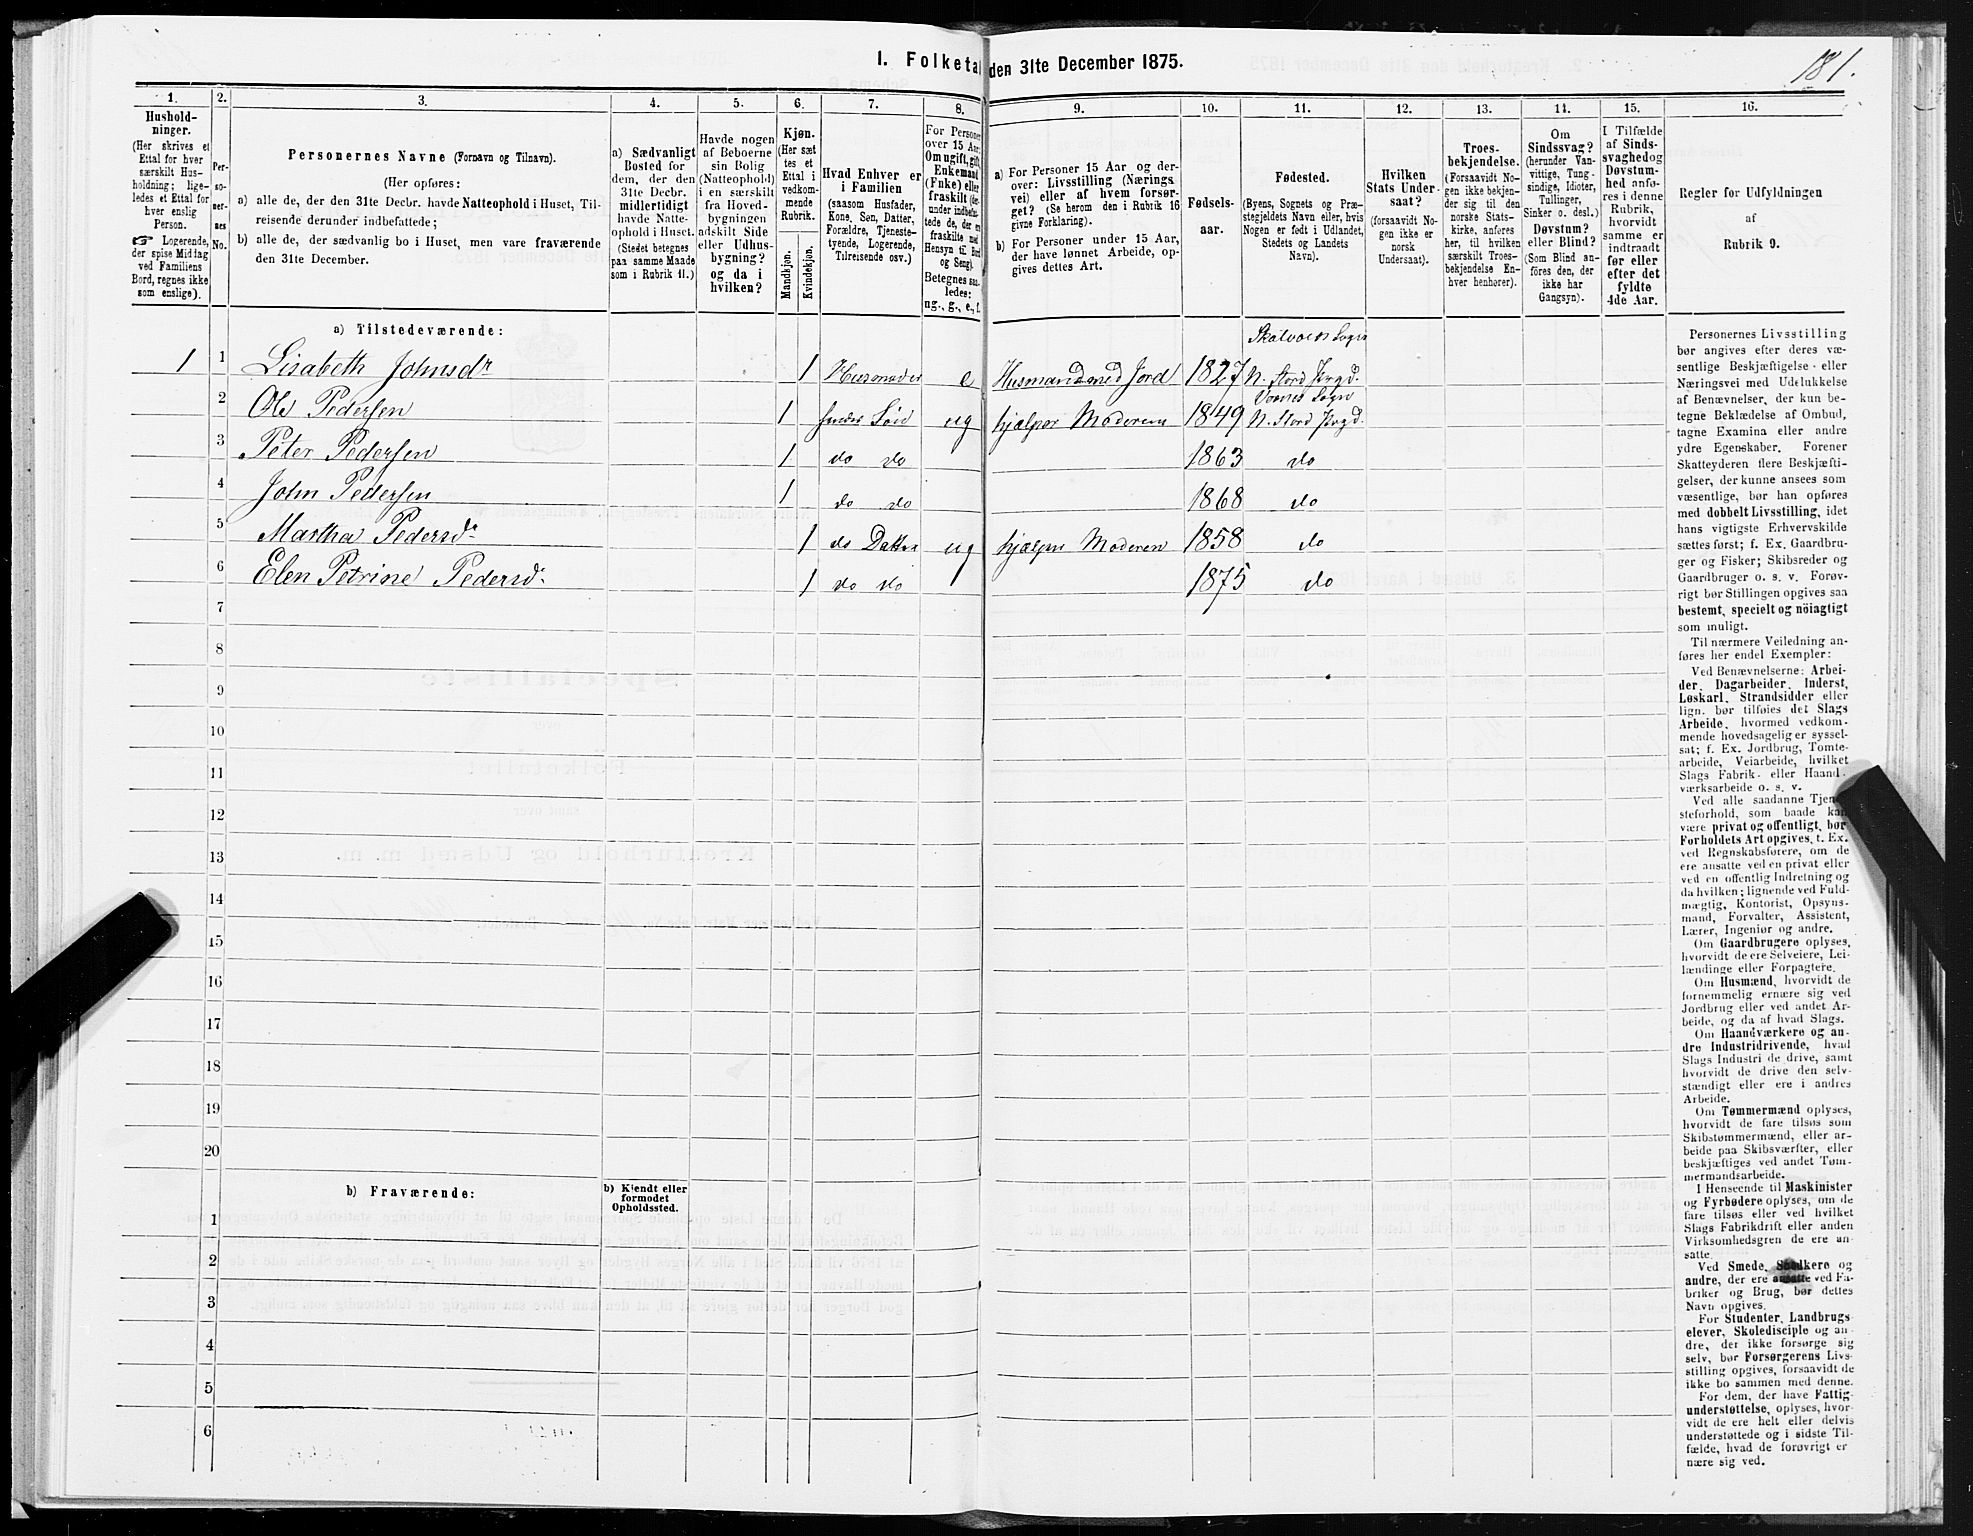 181.
I. Folketal den 31te December 1875.
1. 2. 3. 4. 5. 6. 7. 8. 9. 10. 11. 12. 13. 14. 15. 16.
Hushold-
ninger.
(Her skrives et
Ettal for hver
særskilt Hus-
holdning; lige-
ledes et Ettal for
hver enslig
Person.
☞ Logerende,
der spise Middag
ved Familiens
Bord, regnes ikke
som enslige).
Per-
so-
ner-
nes
No.
Personernes Navne (Fornavn og Tilnavn).
(Her opføres:
a) alle de, der den 31te Decbr. havde Natteophold i Huset, Til-
reisende derunder indbefattede;
b) alle de, der sædvanlig bo i Huset, men vare fraværende
den 31te December.
a) Sædvanligt
Bosted for
dem, der den
31te Decbr.
midlertidigt
havde Natte-
ophold i Huset.
(Stedet betegnes
paa samme Maade
som i Rubrik 11.)
Havde nogen
af Beboerne
sin Bolig
(Natteophold)
i en særskilt
fra Hoved-
bygningen
adskilt Side
eller Udhus-
bygning?
og da i
hvilken?
Kjøn.
(Her sæt
tes et
Ettal i
vedkom-
mende
Rubrik.
Mandkjøn.
Kvindekjøn.
Hvad Enhver er
i Familien
(saasom Husfader,
Kone, Søn, Datter,
Forældre, Tjeneste-
tyende, Logerende,
Tilreisende osv.)
For Personer
over 15 Aar:
Om ugift, gift,
Enkemand
(Enke) eller
fraskilt (der-
under indbefat-
tede de, der ere
fraskilte med
Hensyn til Bord
og Seng).
Betegnes saa-
ledes:
ug., g., e., f.
a) For Personer 15 Aar og der-
over: Livsstilling (Nærings
vei) eller af hvem forsør-
get? (Se herom den i Rubrik 16
givne Forklaring).
b) For Personer under 15 Aar,
der have lønnet Arbeide, op-
gives dettes Art.
Fødsels-
aar.
Fødested.
(Byens, Sognets og Præ-
stegjeldets Navn eller, hvis
Nogen er født i Udlandet,
Stedets og Landets
Navn).
Hvilken
Stats Under-
saat?
(forsaavidt No-
gen ikke er
norsk
Undersaat).
Troes-
bekjendelse.
(Forsaavidt No-
gen ikke bekjen-
der sig til den
norske Stats-
kirke, anføres
her, til hvilken
særskilt Troes-
bekjendelse En-
hver henhører).
Om
Sindssvag?
(herunder Van-
vittige, Tung-
sindige, Idioter,
Tullinger,
Sinker o. desl.)
Døvstum?
eller Blind?
(Som Blind an-
føres den, der
ikke har
Gangsyn).
I Tilfælde
af Sinds-
svaghed og
Døvstum-
hed anfø-
res i denne
Rubrik,
hvorvidt
samme er
indtraadt
før eller
efter det
fyldte
4de Aar.
Regler for Udfyldningen
af
Rubrik 9.
a) Tilstedeværende:
Skatvolds Sogn
1 1 Lisabeth Johnsdr 1 Husmoder e Husmand med Jord 1827 N. Stord Prgd.
Værnes Sogn
2 Ole Pedersen 1 hendes Søn ug hjælper Moderen 1849 N. Stord Prgd.
3 Peter Pedersen 1 do do 1863 do
4 John Pedersen 1 do do 1868 do
5 Martha Pedersd. 1 do Datter ug hjælper Moderen 1858 do
6 Elen Petrine Pedersd. 1 do do 1875 do
7
8
9
10
11
12
13
14
15
16
17
18
19
20
b) Fraværende:
b) Kjendt eller
formodet
Opholdssted.
1
2
3
4
5
6
Personernes Livsstilling
bør angives efter deres væ-
sentlige Beskjæftigelse eller
Næringsvei med Udelukkelse
af Benævnelser, der kun be-
tegne Beklædelse af Ombud,
tagne Examina eller andre
ydre Egenskaber. Forener
Skatteyderen flere Beskjæfti-
gelser, der kunne ansees som
væsentlige, bør han opføres
med dobbelt Livsstilling, idet
hans vigtigste Erhvervskilde
sættes først; f. Ex. Gaardbru-
ger og Fisker; Skibsreder og
Gaardbruger o. s. v. Forøv-
rigt bør Stillingen opgives saa
bestemt, specielt og nöiagtigt
som muligt.
Til nærmere Veiledning an-
føres her endel Exempler:
Ved Benævnelserne: Arbei-
der, Dagarbeider, Inderst,
Løskarl, Strandsidder eller
lign. bør tilføies det Slags
Arbeide, hvormed vedkom-
mende hovedsagelig er syssel-
sat; f. Ex. Jordbrug, Tomte-
arbeide, Veiarbeide, hvilket
Slags Fabrik- eller Haand-
værksarbeide o. s. v.
Ved alle saadanne Tjene-
steforhold, som baade kan
være privat og offentligt, bør
Forholdets Art opgives, t. Ex.
ved Regnskabsførere, om de
ere ansatte ved en privat eller
ved en offentlig Indretning og
da hvilken; lignende ved Fuld-
mægtig, Kontorist, Opsyns-
mand, Forvalter, Assistent,
Lærer, Ingeniør og andre.
Om Gaardbrugere oplyses,
hvorvidt de ere Selveiere, Lei-
lændinge eller Forpagtere.
Om Husmænd, hvorvidt de
fornemmelig ernære sig ved
Jordbrug eller ved andet Ar-
beide, og da af hvad Slags.
Om Haandværkere og an-
dre Industridrivende, hvad
Slags Industri de drive, samt
hvorvidt de drive den selv-
stændigt eller ere i andres
Arbeide.
Om Tømmermænd oplyses,
hvorvidt de fare tilsøs som
Skibstømmermænd, eller ar-
beide paa Skibsværfter, eller
beskjæftiges ved andet Tøm-
mermandsarbeide.
I Henseende til Maskinister
og Fyrbødere oplyses, om de
fare tilsøs eller ved hvilket
Slags Fabrikdrift eller anden
Virksomhedsgren de ere an-
satte.
Ved Smede, Snedkere og
andre, der ere ansatte ved Fa-
briker og Brug, bør dettes
Navn opgives.
For Studenter, Landbrugs-
elever, Skoledisciple og an-
dre, der ikke forsørge sig
selv, bør Forsørgerens Livs-
stilling opgives, forsaavidt de
ikke bo sammen med denne.
For dem, der have Fattig-
understøttelse, oplyses, hvor-
vidt de ere helt eller delvis
understøttede og i sidste Til-
fælde, hvad de forøvrigt er
nære sig ved.